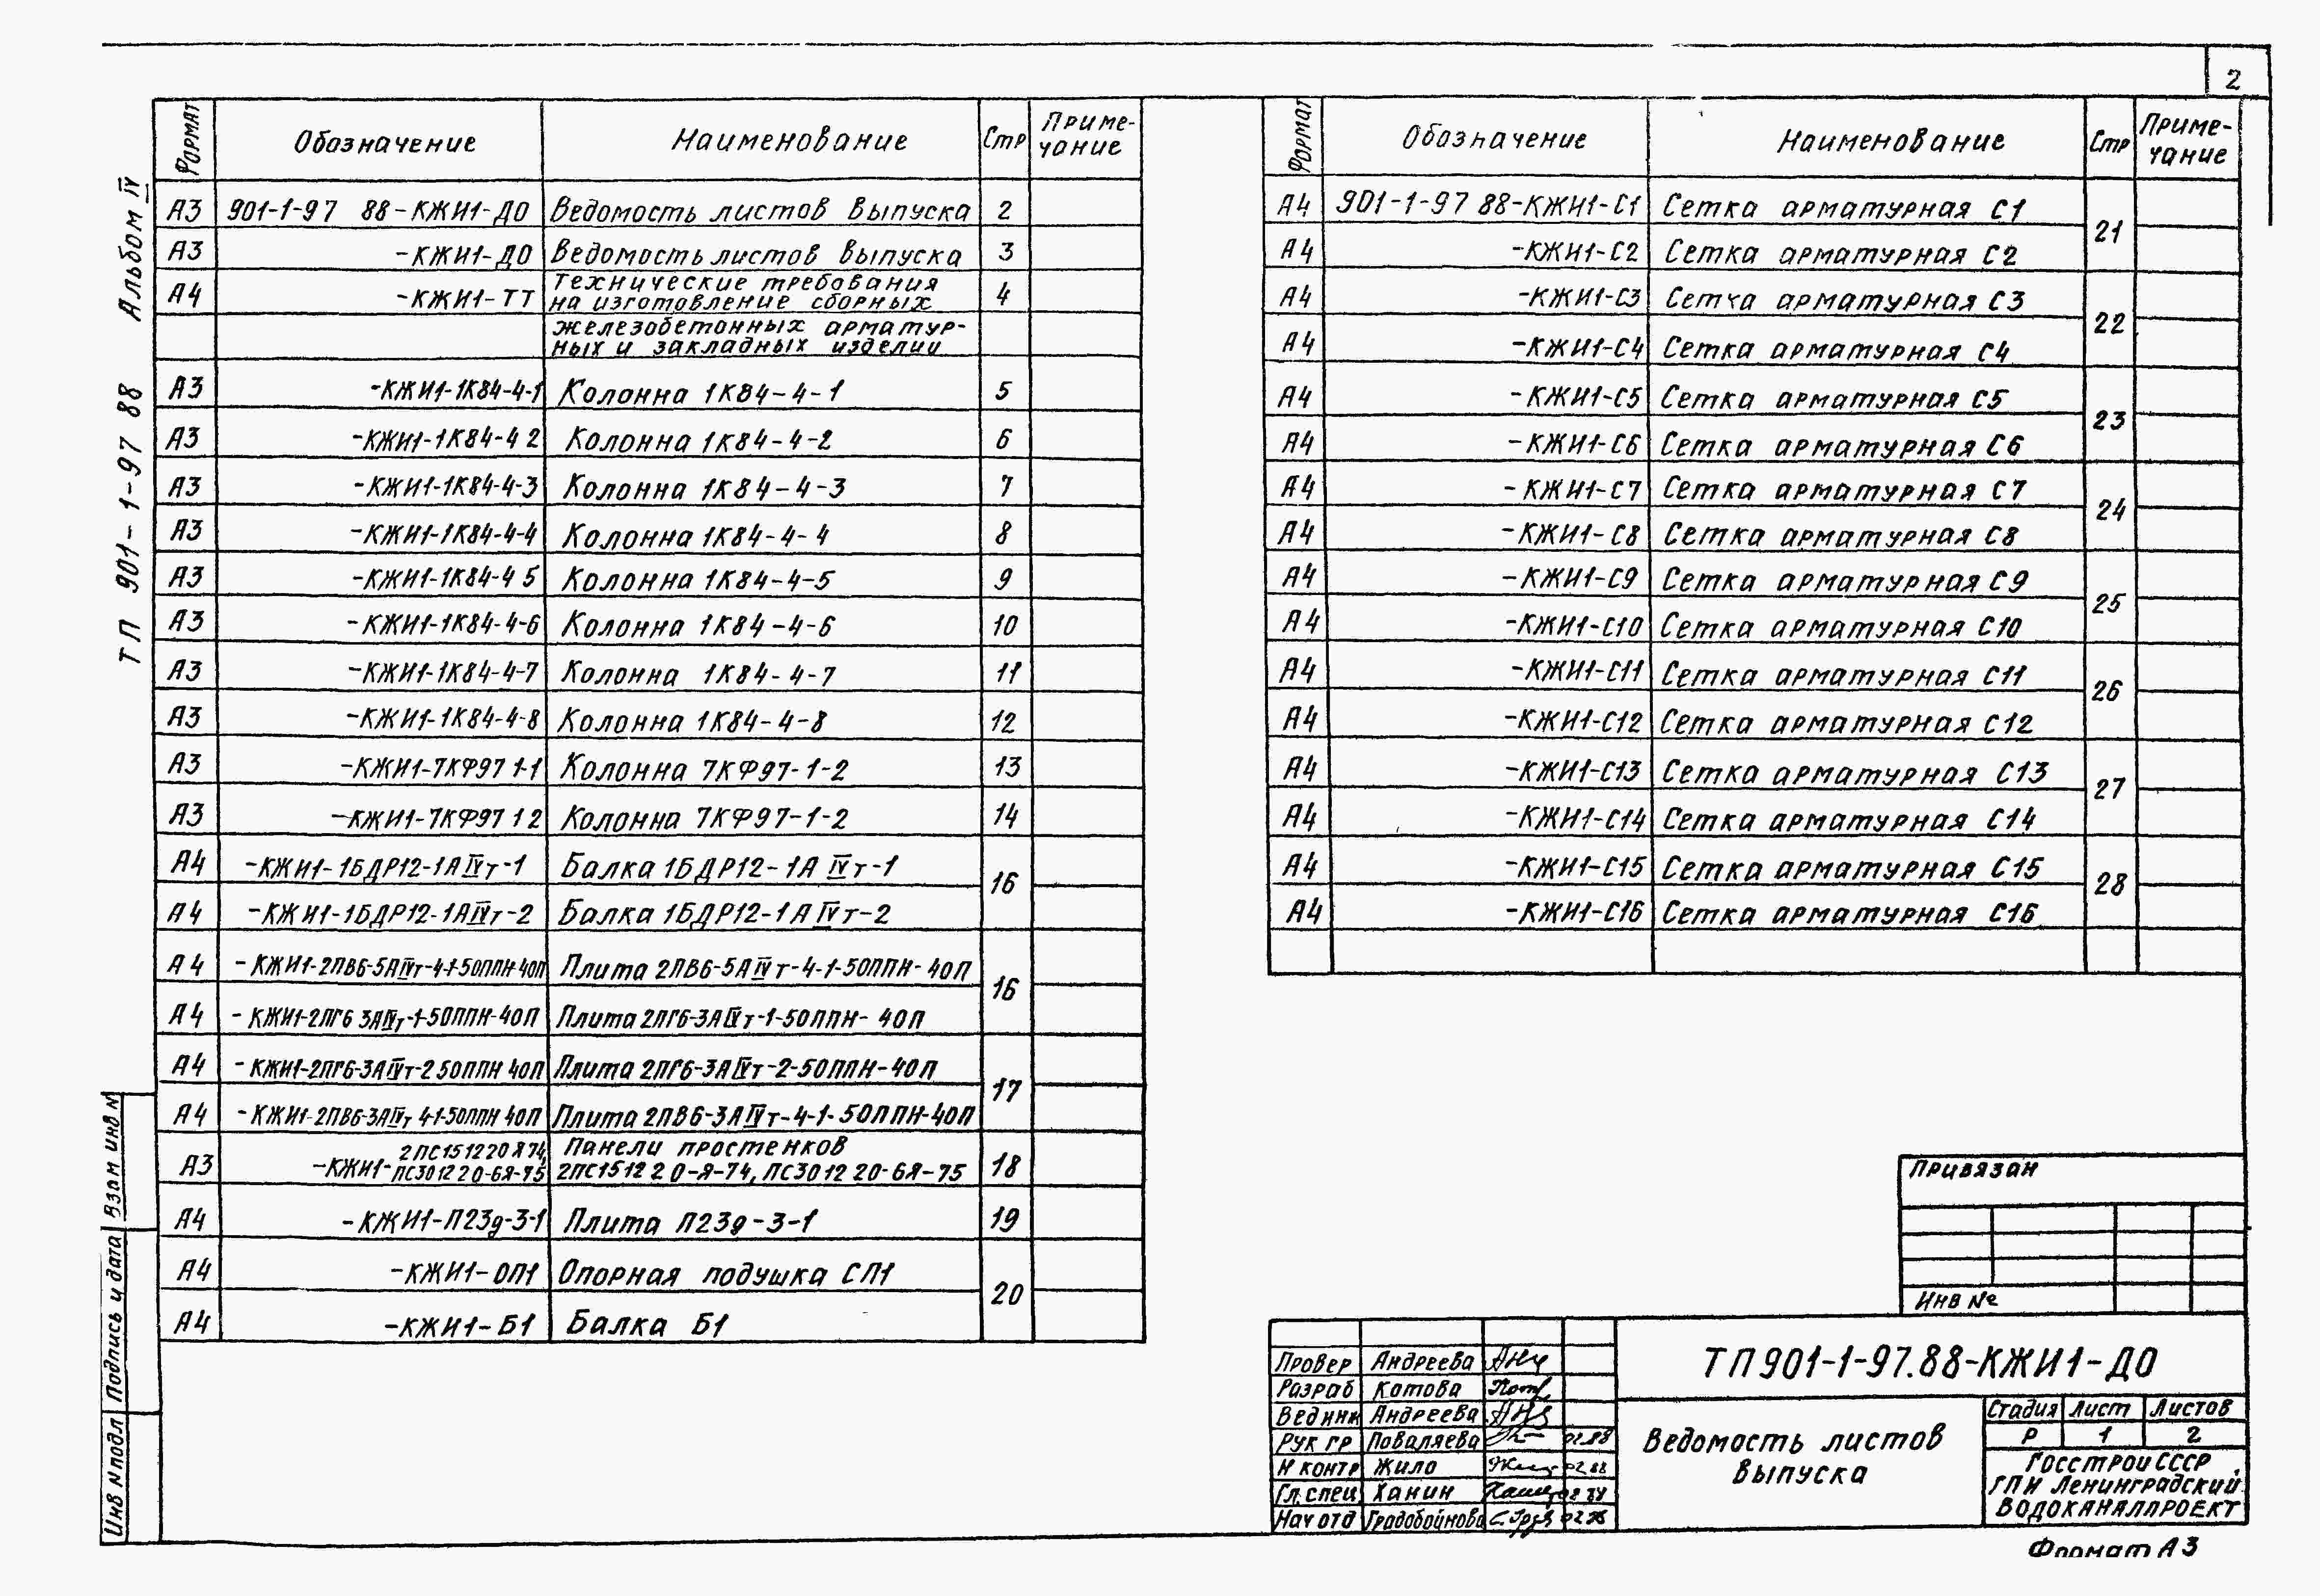 2
Альбом IV
ТП 901-1-97 88
Формат Обозначение Наименование Стр Приме-
чание
А3 901-1-97 88-КЖИ1-ДО Ведомость листов выпуска 2
А3 -КЖИ1-ДО Ведомость листов выпуска 3
А4 -КЖИ1-ТТ Технические требования
на изготовление сборных 4
железобетонных арматур-
ных и закладных изделии
А3 -КЖИ1-1К84-4-1 Колонна 1К84-4-1 5
А3 -КЖИ1-1К84-4 2 Колонна 1К84-4-2 6
А3 -КЖИ1-1К84-4-3 Колонна 1К84-4-3 7
А3 -КЖИ1-1К84-4-4 Колонна 1К84-4-4 8
А3 -КЖИ1-1К84-4 5 Колонна 1К84-4-5 9
А3 -КЖИ1-1К84-4-6 Колонна 1К84-4-6 10
А3 -КЖИ1-1К84-4-7 Колонна 1К84-4-7 11
А3 -КЖИ1-1К84-4-8 Колонна 1К84-4-8 12
А3 -КЖИ1-7КФ97 1-1 Колонна 7КФ97-1-2 13
А3 -КЖИ1-7КФ97 1 2 Колонна 7КФ97-1-2 14
А4 -КЖИ1-1БДР12-1АIVт-1 Балка 1БДР12-1АIVт-1 16
А4 -КЖИ1-1БДР12-1АIVт-2 Балка 1БДР12-1АIVт-2
А4 -КЖИ1-2ПВ6-5АIVт-4-1-50ППН 40П Плита 2ПВ6-5АIVт-4-1-50ППН-40П 16
А4 -КЖИ1-2ПГ6 3АIVт-1-50ППН-40П Плита 2ПГ6-3АIVт-1-50ППН-40П
А4 -КЖИ1-2ПГ6-3АIVт-2 50ППН 40П Плита 2ПГ6-3АIVт-2-50ППН-40П 17
А4 -КЖИ1-2ПВ6-3АIVт 4-1-50ППН 40П Плита 2ПВ6-3АIVт-4-1-50ППН-40П
2ПС1512 20 Я 74, Панели простенков
А3 -КЖИ1-ПС3012 2 0-6Я-75 2ПС1512 2 0-Я-74, ПС3012 20-6Я-75 18
А4 -КЖИ1-П23д-3-1 Плита П23д-3-1 19
А4 -КЖИ1-ОП1 Опорная подушка СП1 20
А4 -КЖИ1-Б1 Балка Б1
Формат Обозначение Наименование Стр Приме-
чание
А4 901-1-97 88-КЖИ1-С1 Сетка арматурная С1 21
А4 -КЖИ1-С2 Сетка арматурная С2
А4 -КЖИ1-С3 Сетка арматурная С3 22
А4 -КЖИ1-С4 Сетка арматурная С4
А4 -КЖИ1-С5 Сетка арматурная С5 23
А4 -КЖИ1-С6 Сетка арматурная С6
А4 -КЖИ1-С7 Сетка арматурная С7 24
А4 -КЖИ1-С8 Сетка арматурная С8
А4 -КЖИ1-С9 Сетка арматурная С9 25
А4 -КЖИ1-С10 Сетка арматурная С10
А4 -КЖИ1-С11 Сетка арматурная С11 26
А4 -КЖИ1-С12 Сетка арматурная С12
А4 -КЖИ1-С13 Сетка арматурная С13 27
А4 -КЖИ1-С14 Сетка арматурная С14
А4 -КЖИ1-С15 Сетка арматурная С15 28
А4 -КЖИ1-С16 Сетка арматурная С16
Взам инв N
Подпись и дата
Инв N подл
Привязан
Инв №
Провер Андреева
Разраб Котова
Вед инж Андреева
Рук гр Поваляева 02.88
Н контр Жило 02 88
Гл. спец Ханин
Нач отд Градобойнова
ТП901-1-97.88-КЖИ1-ДО
Ведомость листов
выпуска
Стадия Лист Листов
Р 1 2
Госстрои СССР
ГПИ Ленинградский
Водоканалпроект
Формат А3